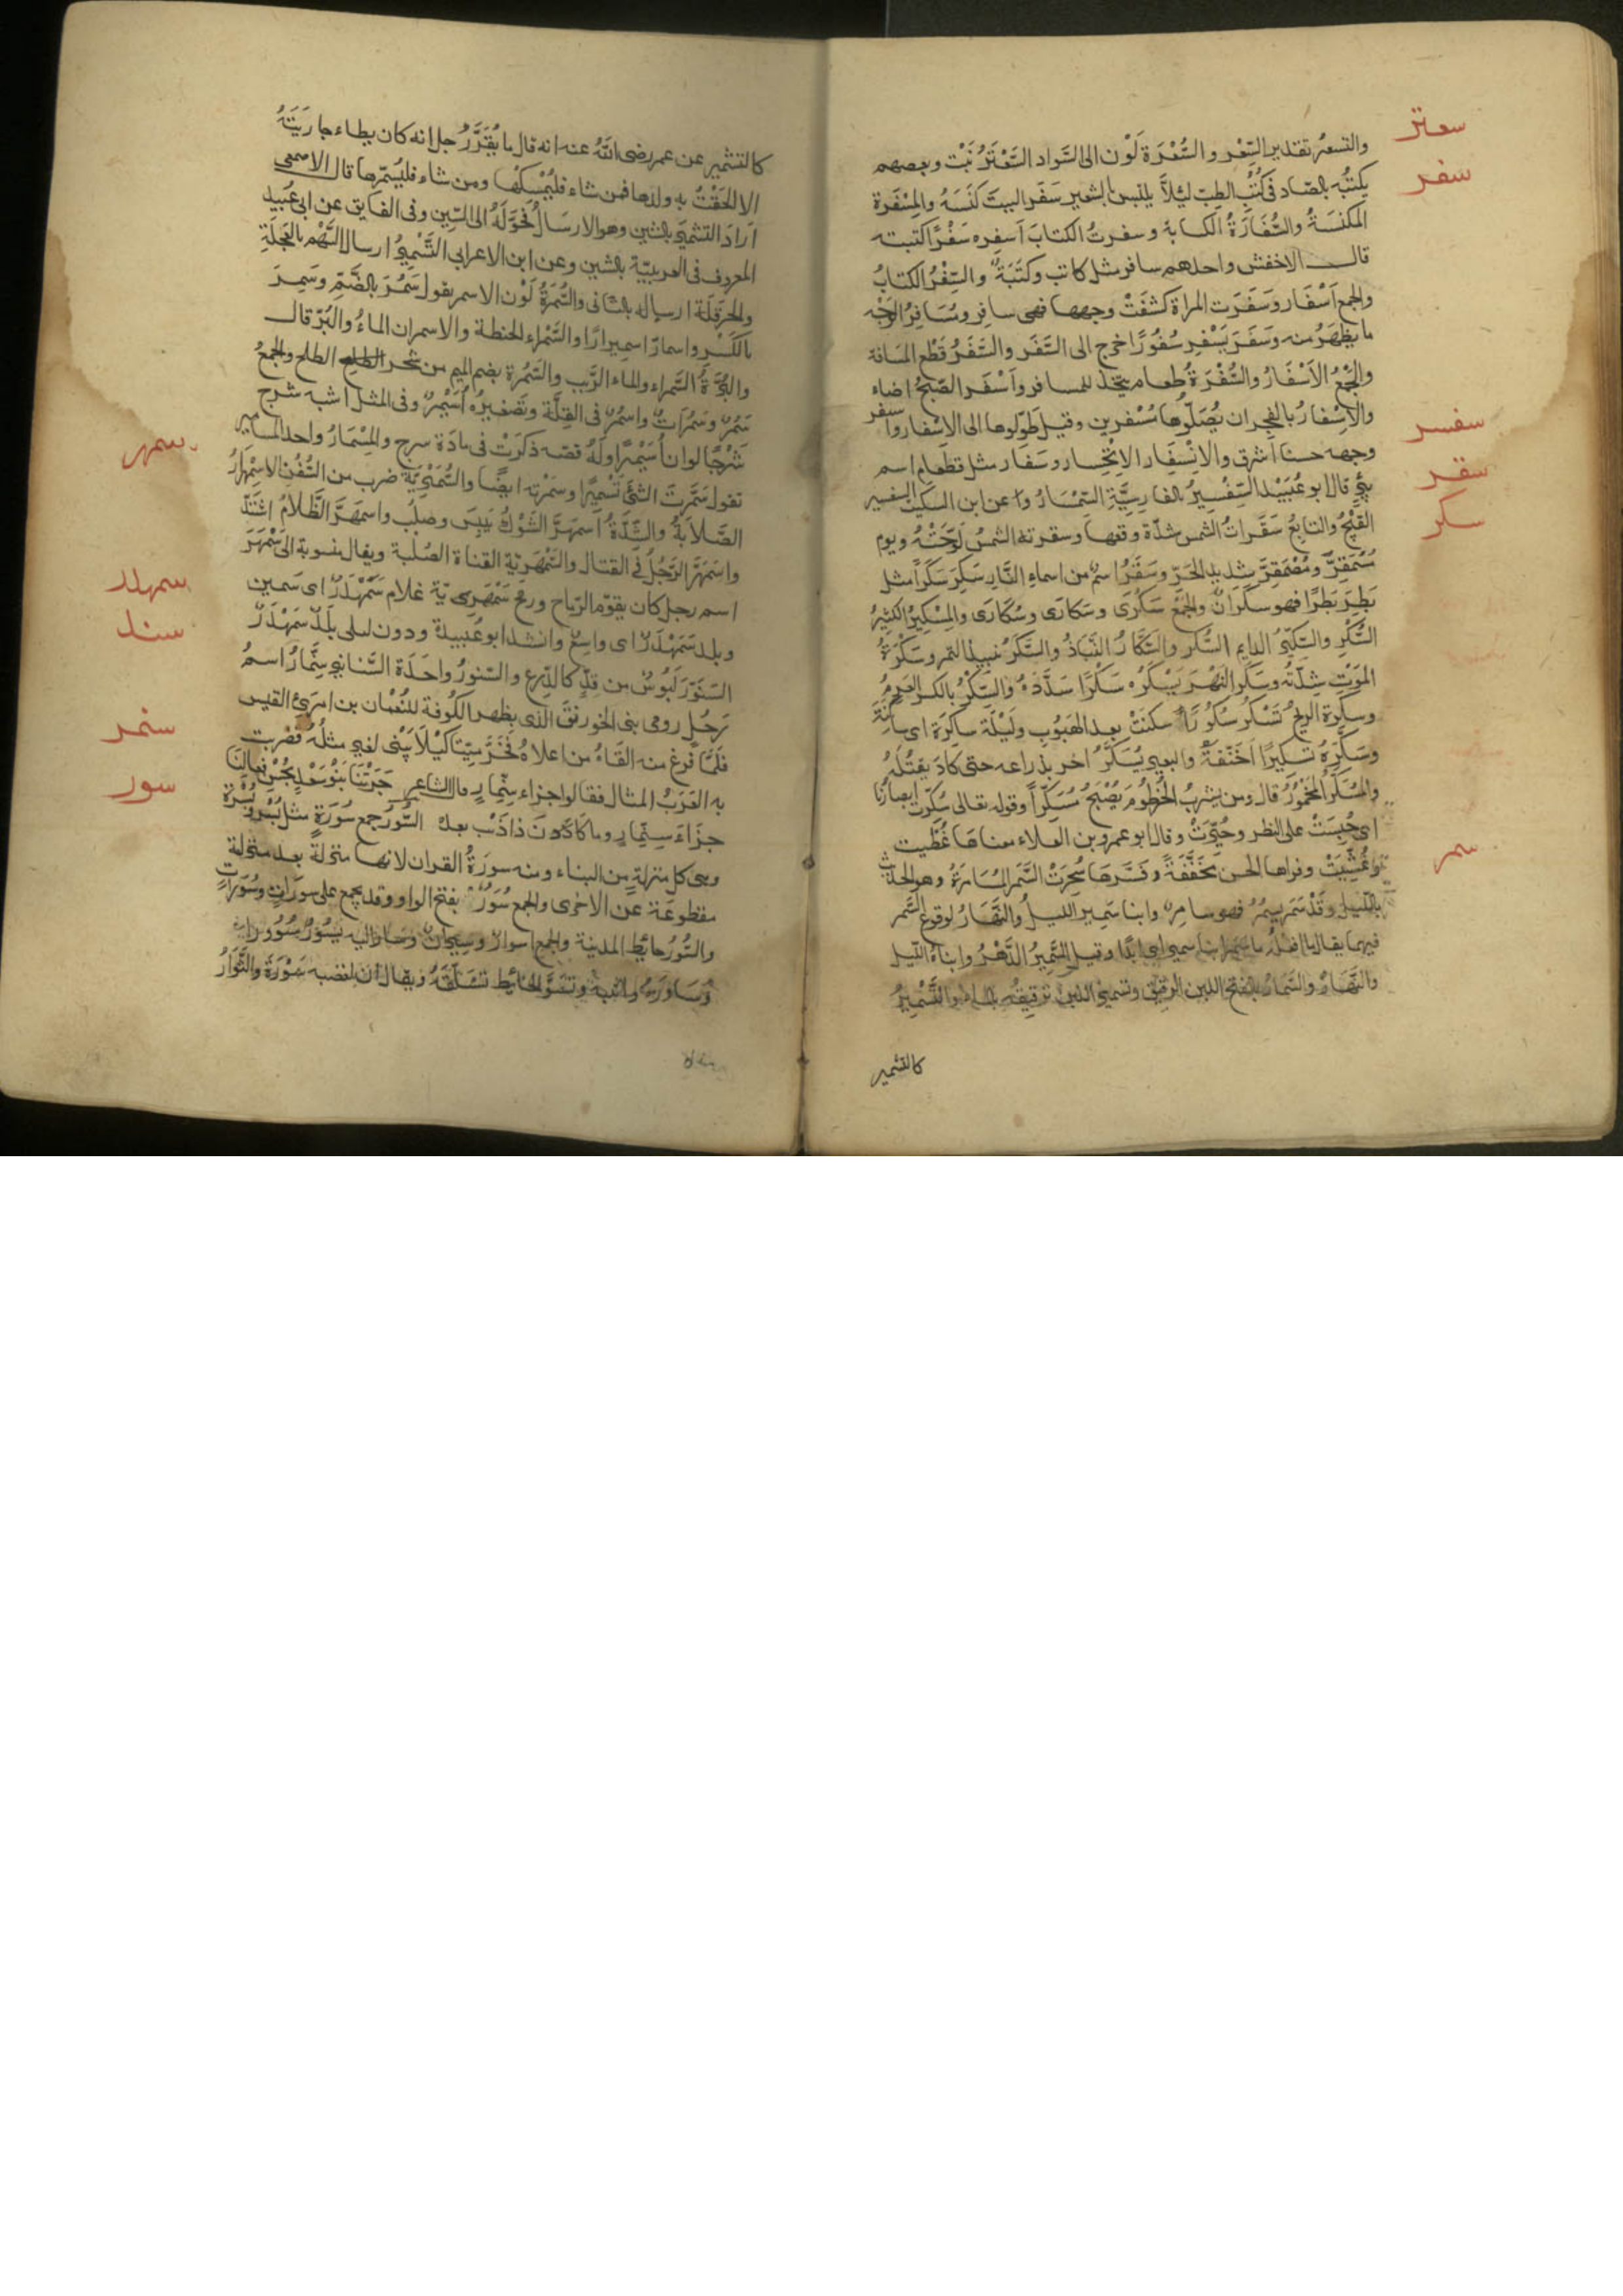 سعتر
والتسعير تقدير السعر والسُّعْرَة لَوْن الى السَّواد السَّعْتَرُ نَبْت وبعضهم
سفر
يكتبُه بالصّاد فى كُتُب الطِبّ لئلاّ يلتبس بالشعير سَفَر البيتَ كَنَسَهُ والمِسْفَرة
المِكنسَةُ والسُّفَارَةُ الكناسة وسفرتُ الكتابَ اَسفره سَفْرًا كتبته
قال الاخفش واحدهم سافر مثل كاتب وكَتَبَةٌ والسِّفْرُ الكتابُ
والجمع اَسْفَار وسَفَرَت المراة كشفَتْ وجهها فهى سافِر ومُسَافِرُ الوَجْه
ما يظهَرُ منه وسَفَرَ يَسْفِر سُفُورًا خرج الى السَّفَر والسَّفَرُ قَطْع المسَافة
والجَمْعُ الاَسْفَارُ والسُّفْرَةُ طعام يتّخذ للمسافر واَسْفَر الصّبحُ اضاء
والاِسْفارُ بالفجر ان يُصَلّوها مُسْفرين وقيل طوّلوها الى الاِسْفار واسفر
سفسر
وجهه حسنا اشرق والانْسِفَار الاِنْحِسار وسَفار مثل قطام اسم
بئر قال ابو عُبَيْد السِّفْسِيرُ بالفارسِيَّةِ السِّمْسَارُ وعن ابن السكيت السفسير
سقر
الفَيْجُ والتابعُ سَقَرات الشمس شدّة وقعها وسقرته الشمسُ لوّحَتْهُ ويوم
مُسْمَقِرٌّ ومُصْمَقِرٌّ شديد الحَرّ وسَقَرُ اسمٌ من اسماءِ النّارِ سَكِرَ سَكَرًا مثل
سكر
بَطِرَ بَطَرًا فهو سكْرَانٌ والجَمْعُ سَكْرَى وسَكارَى وسُكَارَى والمِسْكِيرُ الكثيرُ
السُّكْرِ والسِّكِّيرُ الدايم السُّكْر والسَّكّارُ النَّبّاذُ والسَّكَرُ نبيذ التمر وسَكْرَةُ
المَوْتِ شِدّتُه وسَكَر النَهْرَ يَسْكُرُه سَكْرًا سَدَّدَهُ والسِّكْرُ بالكسر العَرِمُ
وسكرت الريحُ تَسْكُرُ سُكُورًا سكنَتْ بعد الهبُوبِ ولَيْلَة ساكرَة اى ساكِنَة
وسَكَّرَهُ تسكيرًا خَنَقَهُ والبعير يُسَكِّرُ اخر بذراعه حتى كادَ يقتُلهُ
والمُسَكَّرُ المَخْمُورُ قال ومن يشرب الخرطُومَ يُصْبِحُ مُسَكَّرًا وقوله تعالى سُكِّرَت ابصارنا
اى حُبسَتْ على النظر وحُيِّرَتْ وقال ابو عمرو بن العلاء معناها غُطِّيَت
وغُشِّيَتْ وقراها الحسن مُخَفَّفَةً وفَسَّرها سُحِرَتْ السَّمَر المُسَامَرَةُ وهو الحديث
سمر
بالليل وقَدْ سَمَرَ يسمُرُ فهو سامِرٌ وابنا سَمِير الليلُ والنَّهَارُ لوقوع السَّمَر
فيهما يقال لا افعله ما سَمَر ابنا سمير اى ابدًا وقيل السَّمِيرُ الدَّهْرُ وابناهُ الليل
والنَّهَارُ والسَّمَارُ بالفتح اللبن الرقيق وتسمير اللبن ترقيقُه بالماء والتَّسْمِيرُ
كالتشمير
كالتشمير عن عمر رضى اللهُ عنه انه قال ما يُقِرُّ رُجل انه كان يطاء جارِيَتَهُ
الا الحَقْتُ بِهِ ولدها فمن شاء فليُمْسِكْها ومن شاء فليُسَمّرها قال الاصمعى
اَرادَ التشمير بالشين وهو الارسَالُ فحَوَّلَهُ الى السّين وفى الفايق عن ابى عُبيد
المعروف فى العربيّة بالشين وعن ابن الاعرابى التَّسْمِيرُ ارسال السَّهْم بالعَجَلَةِ
والخرقَلَة ارساله بالتانى والسُّمْرَةُ لَوْن الاسمر يقول سَمُرَ بالضَّمّ وسَمِرَ
بالكَسْرِ واسمارّ اسميرارًا والسَّمْراء الحنطة والاسمران الماءُ والبُرّ قال
والبُرَّةُ السَّمراء والماء الرَّيب والسَّمُرة بضم الميم من شجر الطلح والجمعُ
سَمُرٌ وسَمُرَاتٌ واسمُرٌ فى القِلَّة وتَصْغيرُه اُسَيْمِرٌ وفى المثل اشبه شرج
شَرْجًا لو انّ اُسَيْمِرًا ولَهُ قصّه ذكرَتْ فى مادّة سرج والمِسْمَارُ واحد المسامير
تقول سَمّرت الشئ تَسْمِيرًا وسَمَرْته ايضًا والسُّمَيْرِيّةُ ضرب من السُّفُنِ الاِسْمِهْرَارُ
سمهر
الصّلاَبةُ والشِّدَّةُ اسمَهَرَّ الشَّوْكُ يَبِسَ وصَلُبَ واسمَهَرَّ الظَّلاَمُ اشتَدّ
واسمَهَرَّ الرَّجُلُ فى القتال والسَّمْهَرِيّة القناة الصُلْبة ويقال منسوبة الى سَمْهَرَ
اسم رجل كان يقوّم الرّماح ورمح سَمْهَرِى يّة غلام سَمَهْدَرٌ اى سَمين
سمهدر
وبلد سَمَهْدَرٌ اى واسِعٌ وانشد ابو عُبيدة ودون ليلى بَلَدٌ سَمَهْدَرُ
سند
السَّنَوَّر لَبُوسٌ من قِدٍّ كالدّرع والسّنورُ واحَدَة السَّنانير سِنِّمَارُ اسمُ
سنمر
رَجُل رومى بنى الخورنقَ الذى بِظهر الكُوفة للنُعْمان بن امرِئ القيس
فلمَّا فرغ منه القَاهُ من اعلاهُ فخَرَّ مَيّتًا كَيْلاَ يَبْنى لغير مثلُهُ فضربت
به العَرَبُ المثال فقالوا جزاء سِنِّمارٍ قال الشاعر جَزَتْنَا بَنُو سَعْدٍ بِحُسْن فِعالنَا
سور
جزَاءَ سِنِّمارٍ وما كانَ ذا ذَنْب السُّوَرُ جمع سُورَةٍ مثل بُسْر وبُسْرَة
وهى كل منزلةٍ من البناء ومنه سورَةُ القران لانها منزلةٌ بعد منزلة
مقطوعَة عن الاخرى والجمع سُوَرٌ بفتح الواو وقد يجمع على سورَاتٍ وسُوَرَاتٍ
والسُّورُ حايط المدينة والجمع اسوارٌ وسيرانٌ وسار اليه يَسُورُ سُوُورًا
وسَاوَرَهُ واثبه وتسَوَّرَ الحائط تسَلَّقَهُ ويقال ان لغضبه سَوْرَة والسَّوّارُ